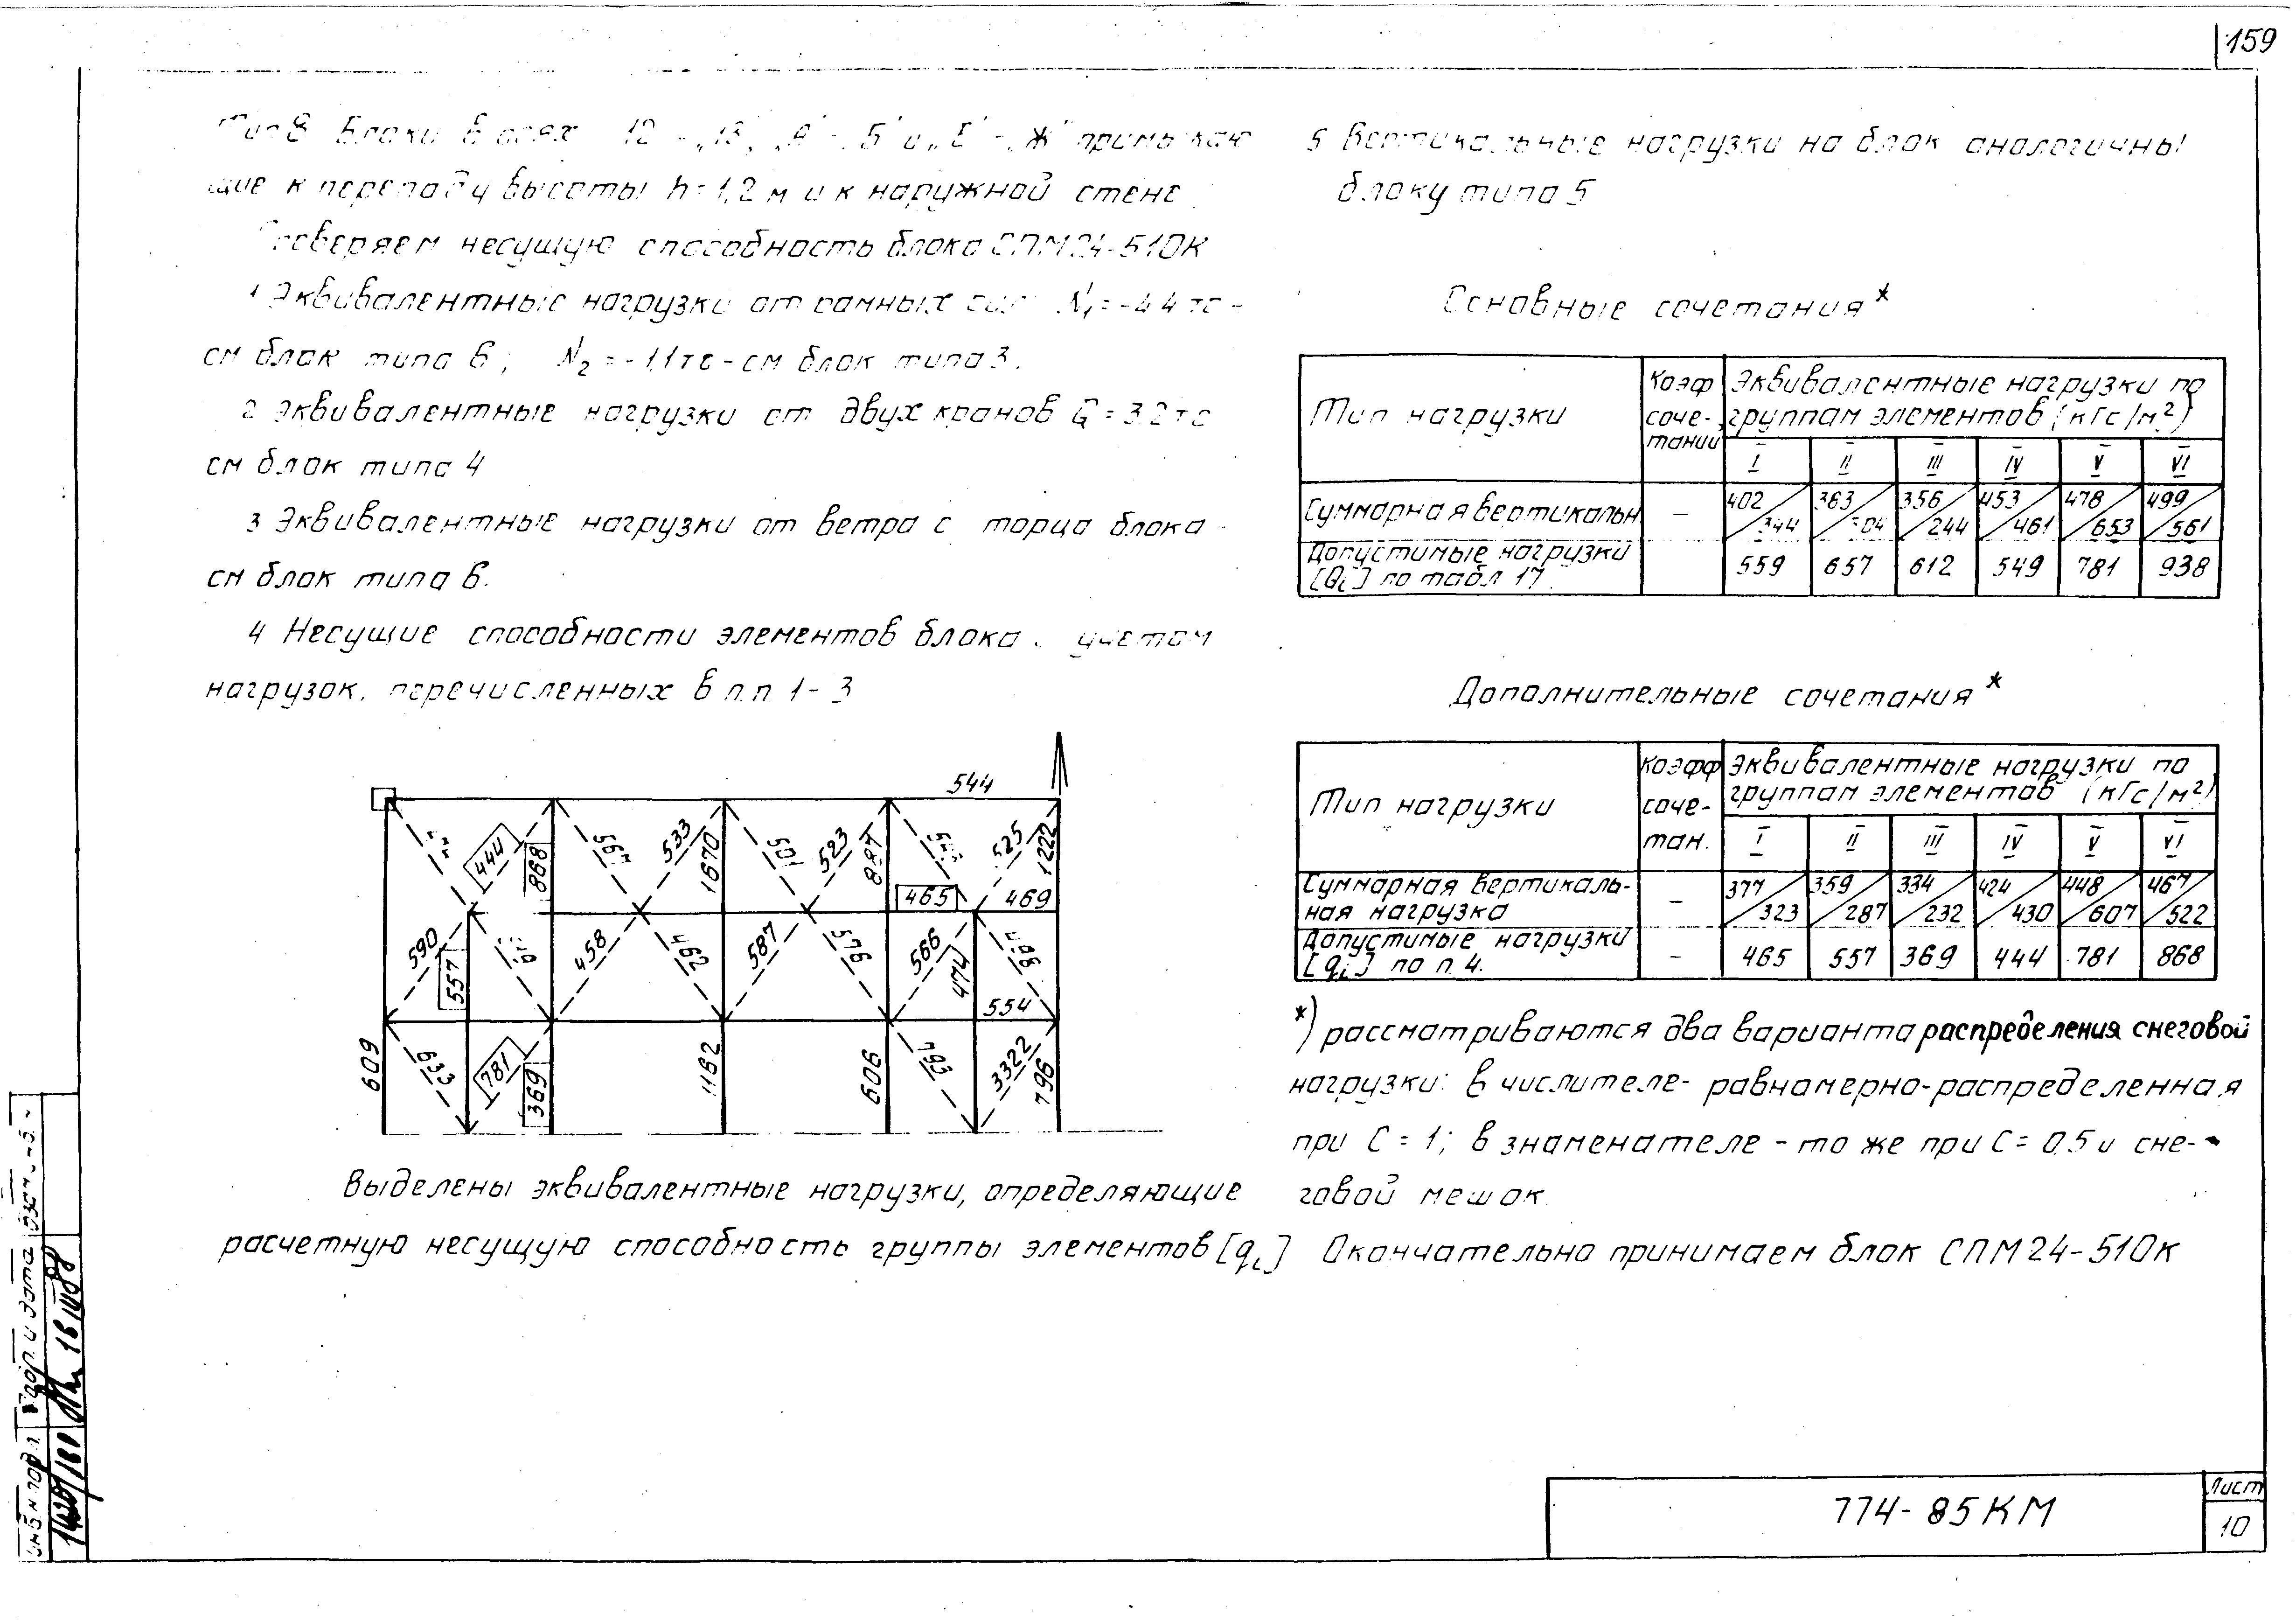 159
Тип 8 Блоки в осях „12"-„13", „А"-„Б" и „Е"-„Ж" примыкаю
щие к перепаду высоты h=1,2 м и к наружной стене
Проверяем несущую способность блока СПМ24-510К
1 Эквивалентные нагрузки от рамных сил N₁=-44 тс -
см блок типа 6; N₂=-11тс - см блок типа 3.
2 Эквивалентные нагрузки от двух кранов Q=3.2тс
см блок типа 4
3 Эквивалентные нагрузки от ветра с торца блока -
см блок типа 6.
4 Несущие способности элементов блока с учетом
нагрузок, перечисленных в п.п 1-3
544
444
868
567
533
1670
501
523
887
525
1222
465
469
590
557
458
462
587
576
566
474
498
554
609
633
781
369
1182
606
793
3322
796
Выделены эквивалентные нагрузки, определяющие
расчетную несущую способность группы элементов [qi]
5 Вертикальные нагрузки на блок аналогичны
блоку типа 5
Основные сочетания*
Тип нагрузки
Коэф сочетаний
Эквивалентные нагрузки по
группам элементов (кгс/м²)
I II III IV V VI
Суммарная вертикальн. - 402/344 363/304 356/244 453/461 478/653 499/561
Допустимые нагрузки
[Qi] по табл 17. 559 657 612 549 781 938
Дополнительные сочетания*
Тип нагрузки
Коэфф соче- тан.
Эквивалентные нагрузки по
группам элементов (кгс/м²)
I II III IV V VI
Суммарная вертикаль-
ная нагрузка - 377/323 359/287 334/232 424/430 448/607 467/522
Допустимые нагрузки
[qi] по п. 4. - 465 557 369 444 781 868
*) рассматриваются два варианта распределения снеговой
нагрузки: в числителе- равномерно-распределенная
при С=1; в знаменателе - то же при С=0,5 и сне-
говой мешок.
Окончательно принимаем блок СПМ24-510К
774-85КМ
Лист
10
инв N подл.
Подп. и дата